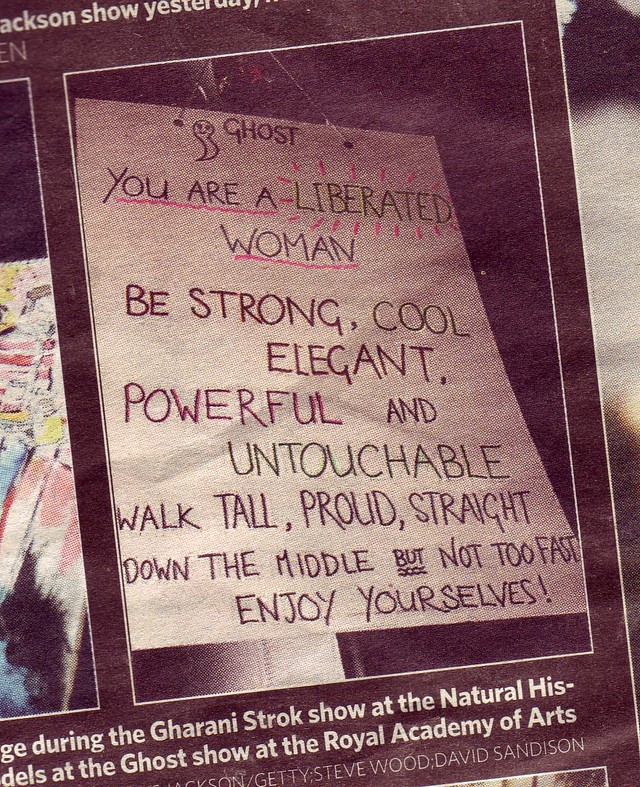 ackson show yesterday,
EN
GHOST
YOU ARE A LIBERATED
WOMAN
BE STRONG, COOL
ELEGANT,
POWERFUL AND
UNTOUCHABLE
WALK TALL, PROUD, STRAIGHT
DOWN THE MIDDLE BUT NOT TOO FAST
ENJOY YOURSELVES!
ge during the Gharani Strok show at the Natural His-
dels at the Ghost show at the Royal Academy of Arts
JACKSON/GETTY;STEVE WOOD;DAVID SANDISON